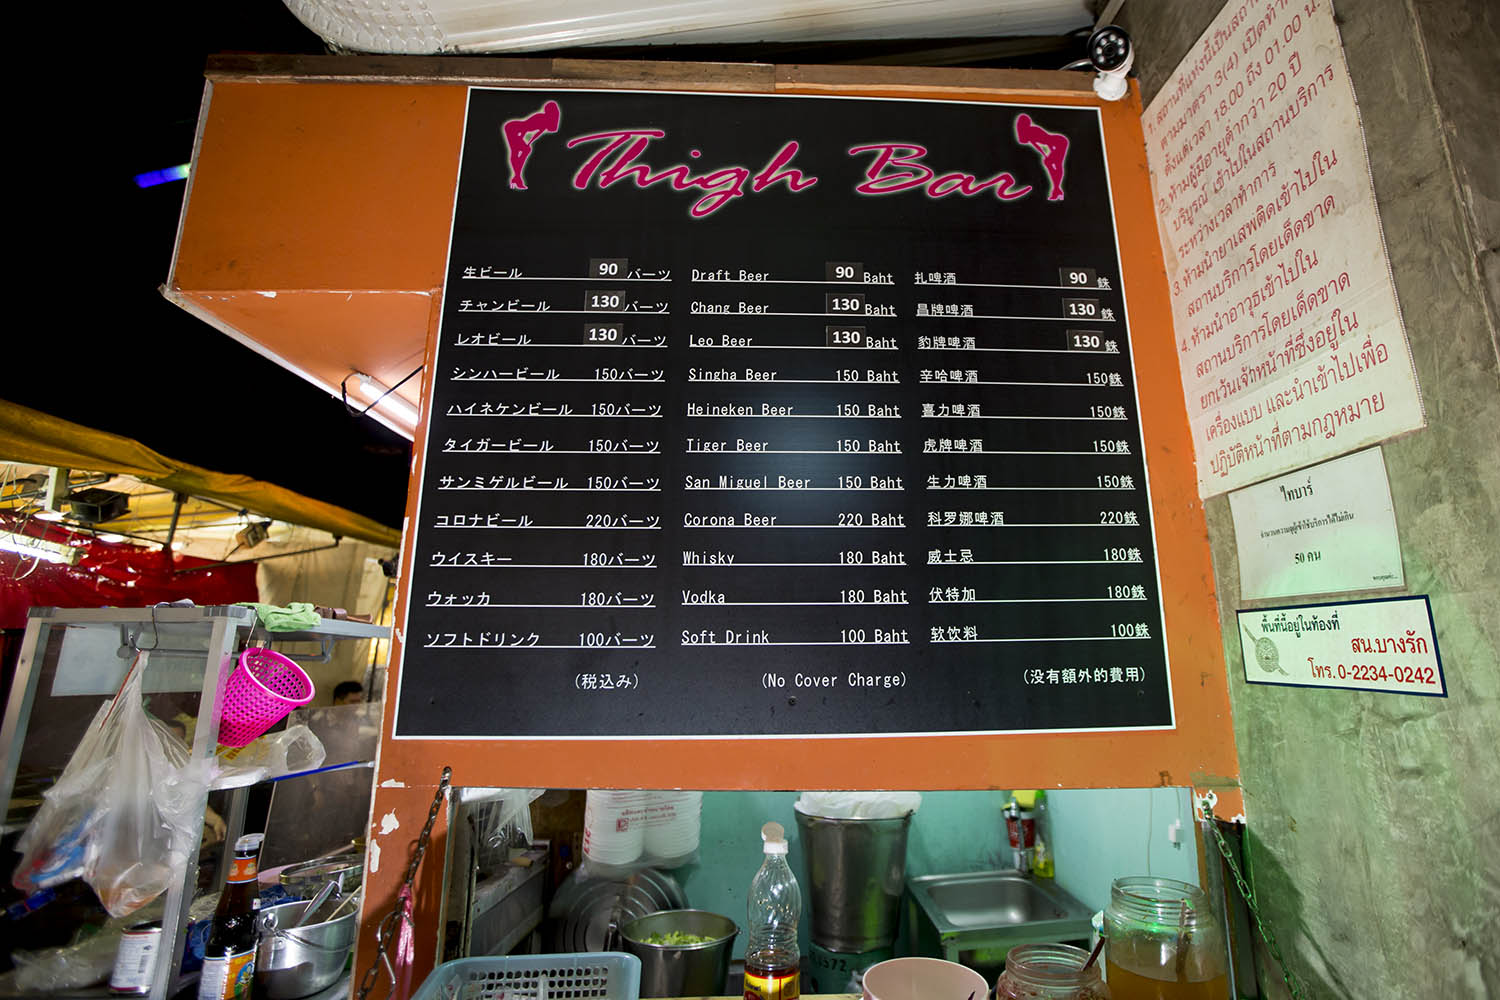 Thigh Bar
生ビール 90 バーツ
チャンビール 130 バーツ
レオビール 130 バーツ
シンハービール 150バーツ
ハイネケンビール 150バーツ
タイガービール 150バーツ
サンミゲルビール 150バーツ
コロナビール 220バーツ
ウイスキー 180バーツ
ウォッカ 180バーツ
ソフトドリンク 100バーツ
(税込み)
Draft Beer 90 Baht
Chang Beer 130 Baht
Leo Beer 130 Baht
Singha Beer 150 Baht
Heineken Beer 150 Baht
Tiger Beer 150 Baht
San Miguel Beer 150 Baht
Corona Beer 220 Baht
Whisky 180 Baht
Vodka 180 Baht
Soft Drink 100 Baht
(No Cover Charge)
扎啤酒 90 銖
昌牌啤酒 130 銖
豹牌啤酒 130 銖
辛哈啤酒 150銖
喜力啤酒 150銖
虎牌啤酒 150銖
生力啤酒 150銖
科罗娜啤酒 220銖
威士忌 180銖
伏特加 180銖
软饮料 100銖
(没有額外的費用)
1. สถานที่แห่งนี้เป็นสถาน
ตามมาตรา 3(4) เปิดทำ
ตั้งแต่เวลา 18.00 ถึง 01.00 น.
2. ห้ามผู้มีอายุต่ำกว่า 20 ปี
บริบูรณ์ เข้าไปในสถานบริการ
ระหว่างเวลาทำการ
3. ห้ามนำยาเสพติดเข้าไปใน
สถานบริการโดยเด็ดขาด
4. ห้ามนำอาวุธเข้าไปใน
สถานบริการโดยเด็ดขาด
ยกเว้นเจ้าหน้าที่ซึ่งอยู่ใน
เครื่องแบบ และนำเข้าไปเพื่อ
ปฏิบัติหน้าที่ตามกฎหมาย
ไทบาร์
จำนวนความจุผู้เข้าใช้บริการได้ไม่เกิน
50 คน
พื้นที่นี้อยู่ในท้องที่
สน.บางรัก
โทร. 0-2234-0242